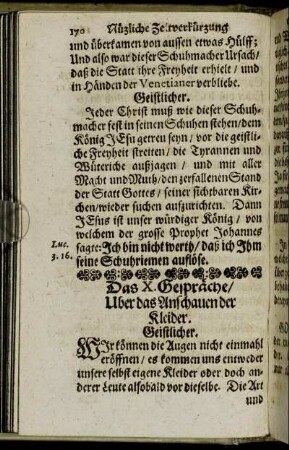 170 Nüzliche Zeitverkürzung
und überkamen von aussen etwas Hülff;
Und also war dieser Schuhmacher Ursach/
daß die Statt ihre Freyheit erhielt / und
in Händen der Venetianer verbliebe.
Geistlicher.
Jeder Christ muß wie dieser Schuh-
macher fest in seinen Schuhen stehen/dem
König JEsu getreu seyn/ vor die geistli-
che Freyheit streiten/ die Tyrannen und
Wüteriche außjagen / und mit aller
Macht und Muth/den zerfallenen Stand
der Statt Gottes/ seiner sichtbaren Kir-
chen/wieder suchen aufzurichten. Dann
JEsus ist unser würdiger König / von
welchem der grosse Prophet Johannes
sagte: Ich bin nicht werth/ daß ich Ihm
seine Schuhriemen auflöse.
Luc.
3. 16.
Das X. Gespräche/
Uber das Anschauen der
Kleider.
Geistlicher.
WIr können die Augen nicht einmahl
eröffnen/ es kommen uns entweder
unsere selbst eigene Kleider oder doch an-
derer Leute alsobald vor dieselbe. Die Art
und